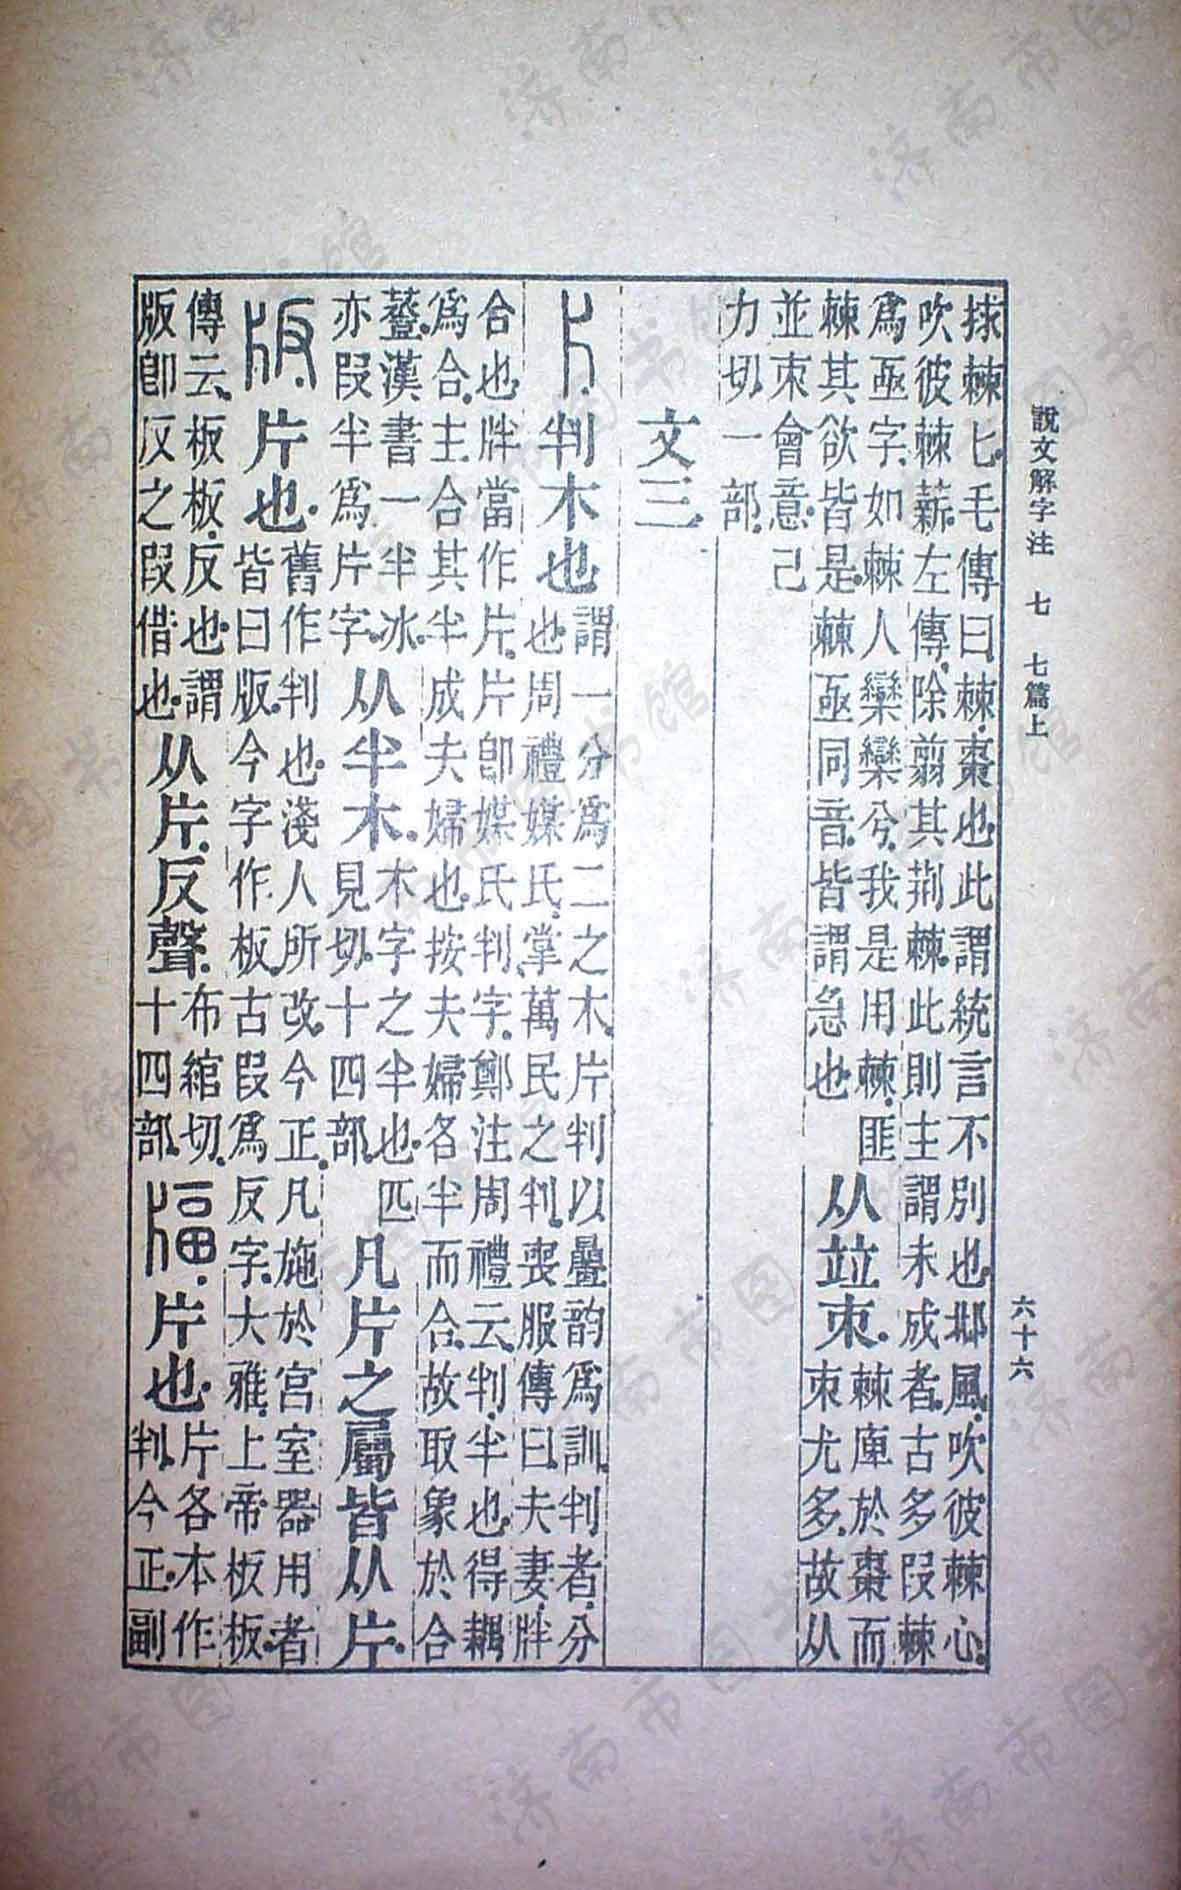 說文解字注 七 七篇上 六十六
捄棘匕。毛傳曰棘。棗也。此謂統言不別也。邶風。吹彼棘心。
吹彼棘薪。左傳。除翦其荆棘。此則主謂未成者。古多叚棘
爲亟字。如棘人欒欒兮。我是用棘。匪
棘其欲皆是。棘亟同音。皆謂急也
从並朿。
棘庳於棗而
朿尤多。故从
並朿會意。己
力切。一部。
文三
片。判木也。
謂一分爲二之木。片判以曡韵爲訓。判者。分
也。周禮媒氏。掌萬民之判。喪服傳曰。夫妻。牉
合也。牉當作片。片卽媒氏判字。鄭注周禮云。判。半也。得耦
爲合。主合其半成夫婦也。按夫婦各半而合。故取象於合
漢書一半冰。
亦叚半爲片字。
从半木。
木字之半也。匹
見切。十四部。
凡片之屬皆从片。
版。片也。
舊作判也。淺人所改。今正。凡施於宮室器用者
皆曰版。今字作板。古叚爲反字。大雅。上帝板板。
傳云。板板。反也。謂
版卽反之叚借也。
从片。反聲。
布綰切。
十四部。
牑。片也。
片各本作
判。今正。副